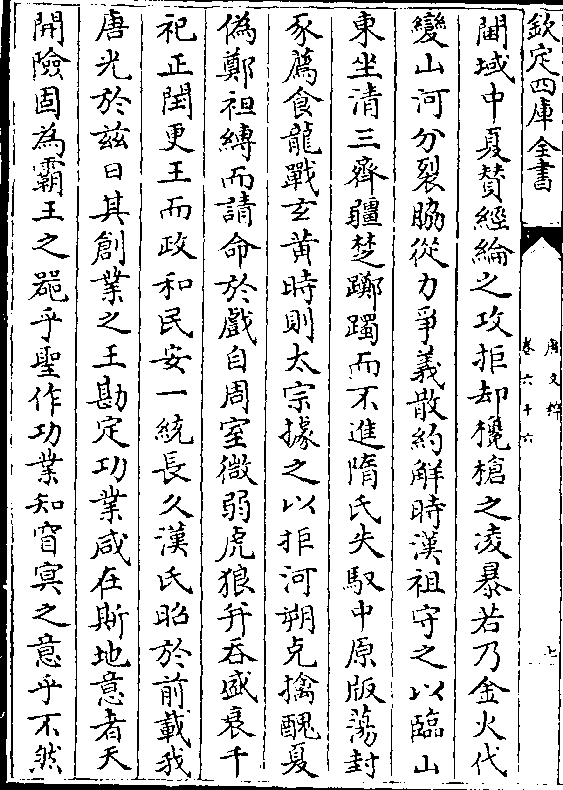 欽定四庫全書
唐文粹
卷六十六
七
閫域中夏賛經綸之攻拒却欃槍之凌暴若乃金火代
變山河分裂脇從力爭義散約解時漢祖守之以臨山
東坐清三齊疆楚躑躅而不進隋氏失馭中原版蕩封
豕薦食龍戰玄黃時則太宗據之以拒河朔克擒醜夏
偽鄭祖縛而請命於戲自周室微弱虎狼并吞盛衰千
祀正閏更王而政和民安一統長久漢氏昭於前載我
唐光於兹日其創業之王勘定功業咸在斯地意者天
開險固為霸王之噐乎聖作功業知窅冥之意乎不然